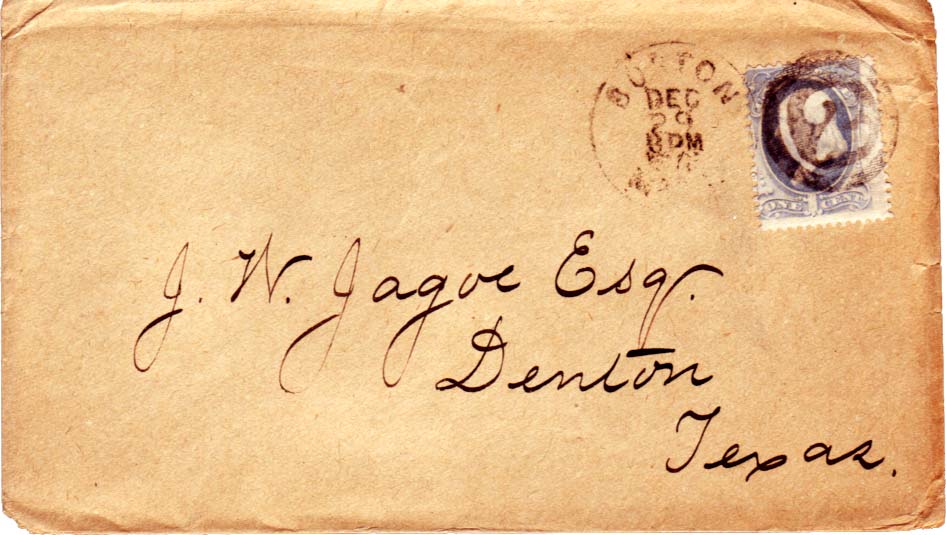 BOSTON
DEC
29
PM
ONE 1 CENT
J. W. Jagoe Esq.
Denton
Texas.